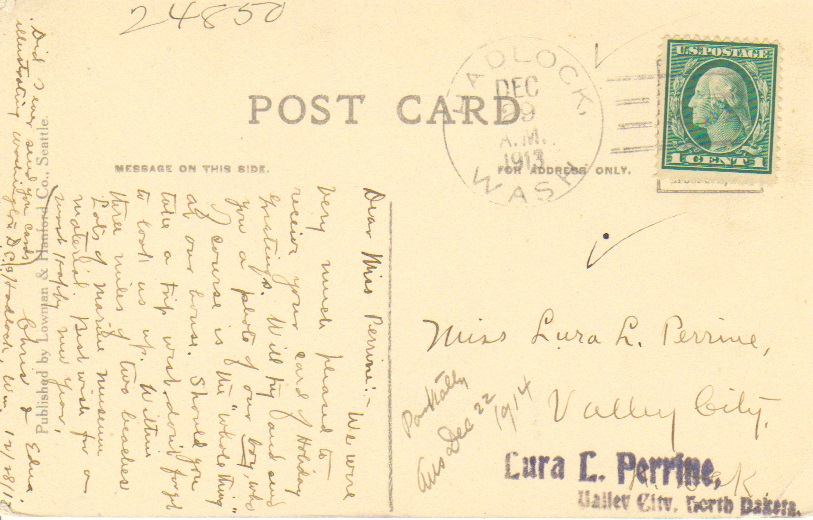 24850
POST CARD
MESSAGE ON THIS SIDE.
FOR ADDRESS ONLY.
HADLOCK,
DEC
29
A.M.
1913
WASH
U.S. POSTAGE
1 CENT 1
Dear Miss Perrine:- We were
very much pleased to
receive your card of Holiday
Greetings. Will try and send
you a photo of our boy, who
of course is the "whole thing"
at our house. Should you
take a trip west, don't forget
to look us up. Within
three miles of two beaches
Lots of marine museum
material. Best wish for a
most Happy New Year,
Chris & Edna
Did I ever send you cards
illustrating Washington D.C.?
Hadlock, Wn. 12/28/13
Published by Lowman & Hanford Co., Seattle.
Miss Lura L. Perrine,
Valley City,
Partially
Ans Dec 22
1914
Lura L. Perrine,
Valley City, North Dakota.